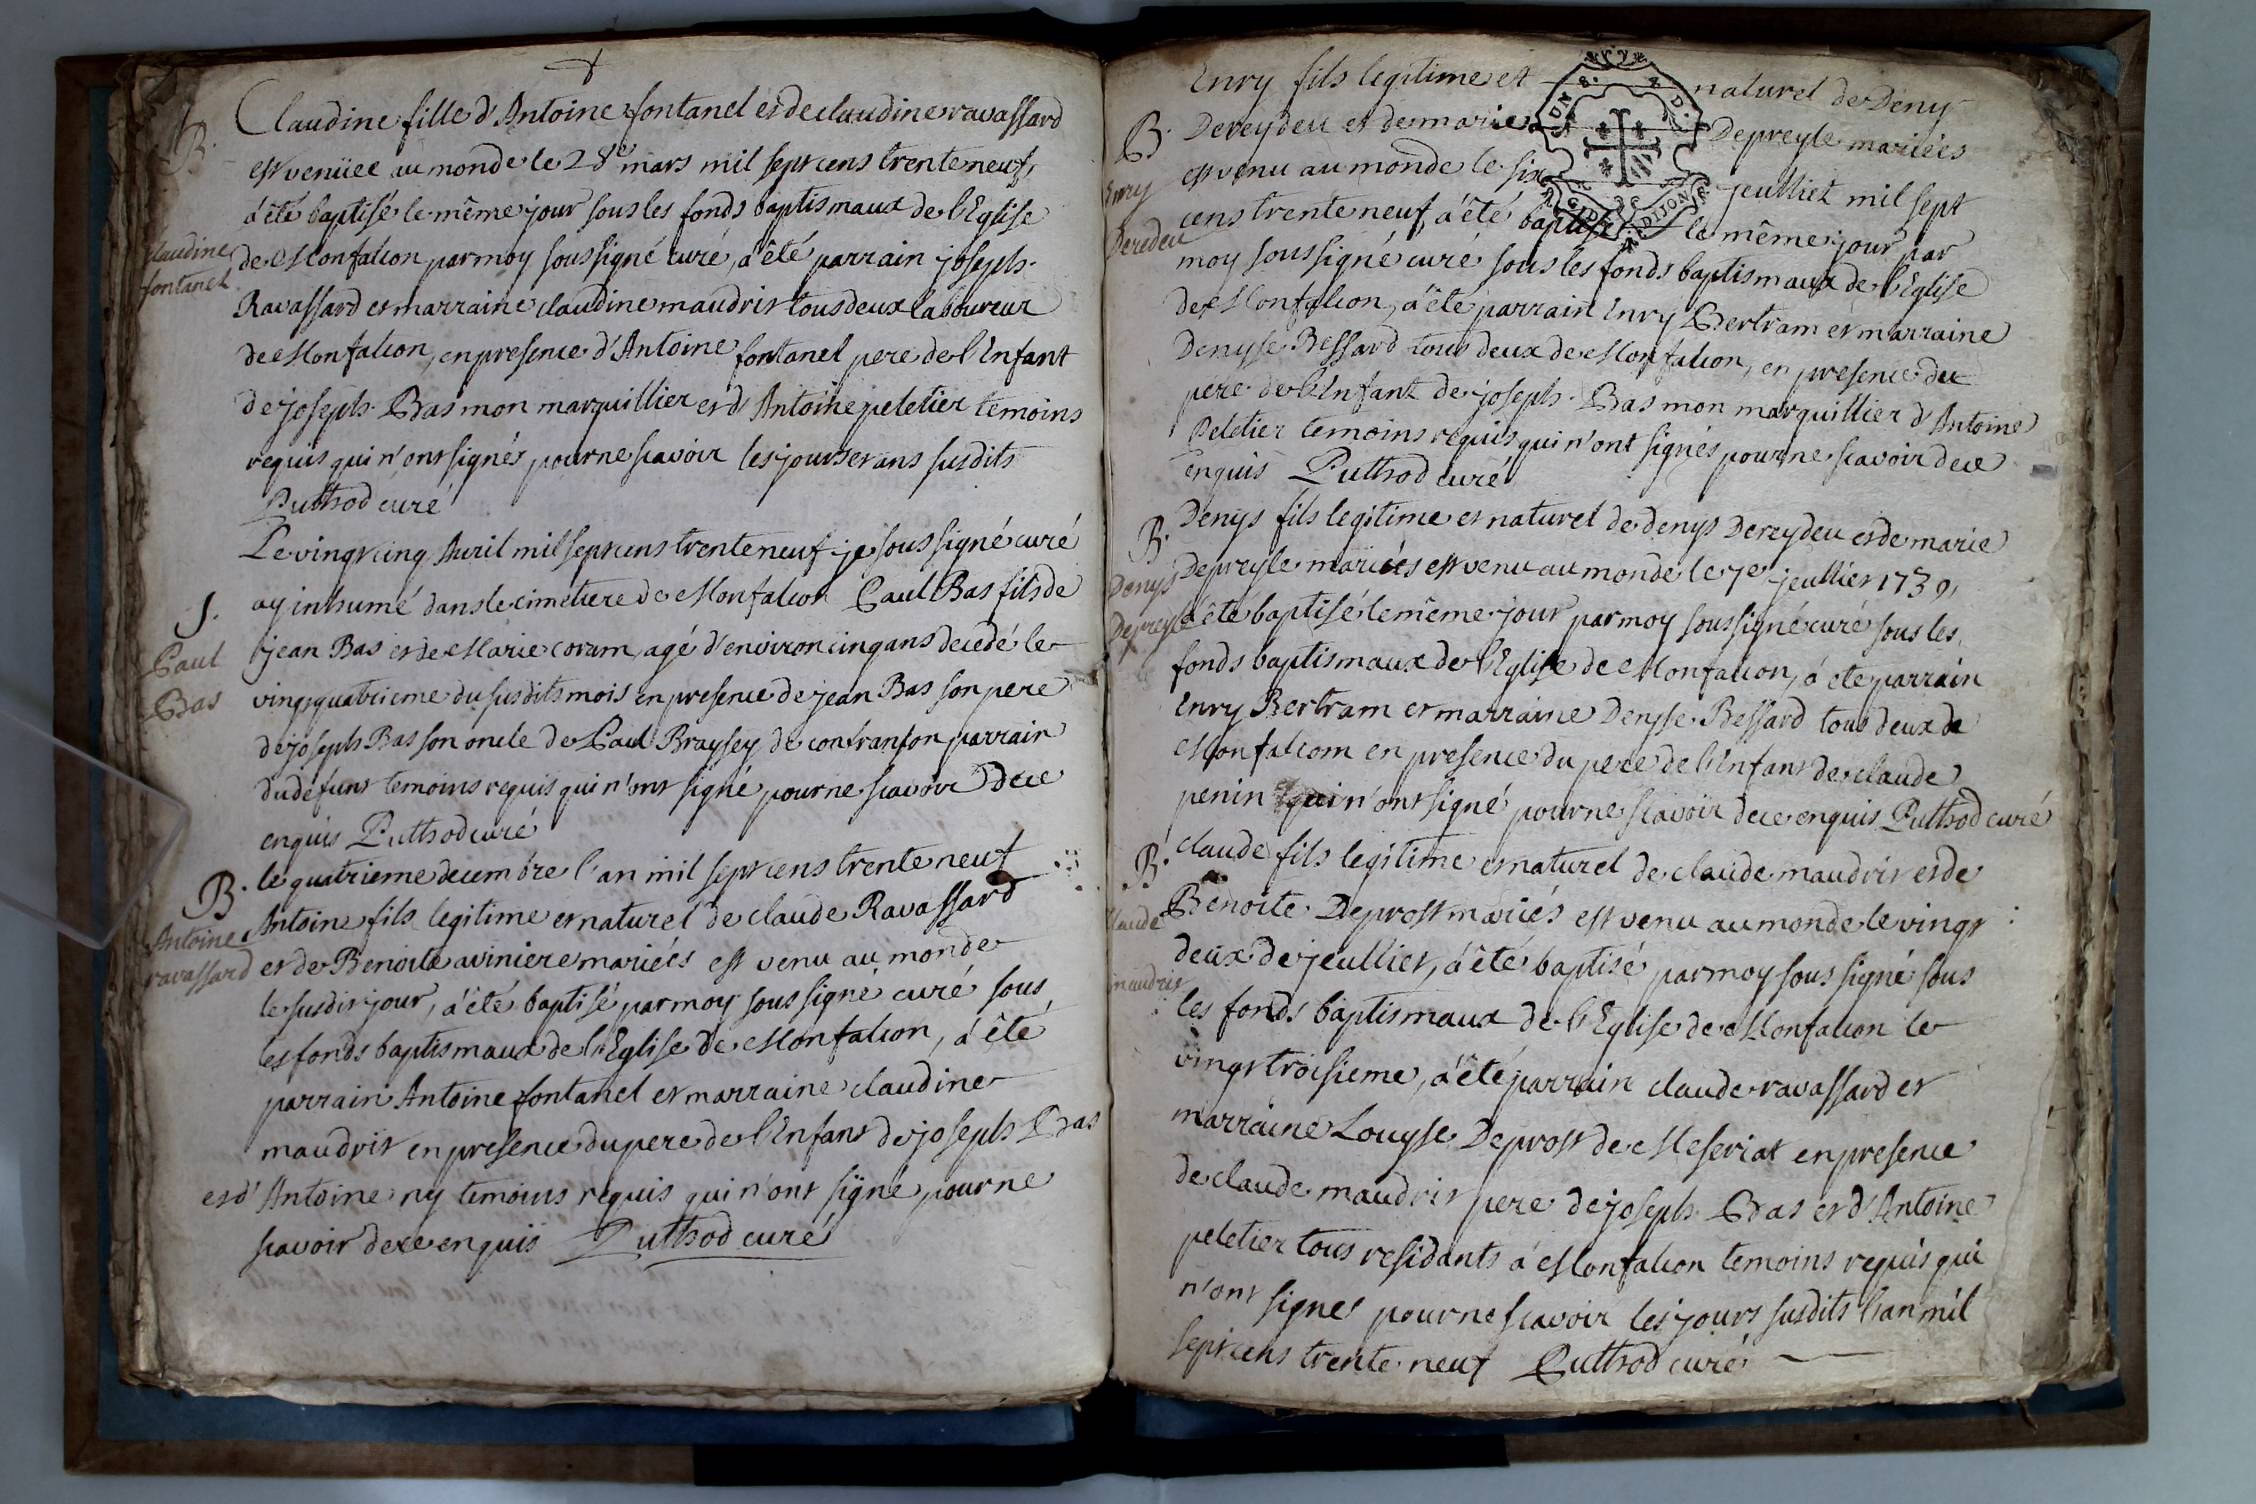 B.
Claudine fontanel
Claudine fille d'Antoine fontanel et de claudine ravassard
est venüee au monde le 28e mars mil sept cens trente neuf,
a été baptisé le même jour sous les fonds baptismaux de l'Eglise
de Monfalcon par moy sous signé curé, a été parrain joseph
Ravassard et marraine claudine maudrit tous deux laboureur
de Monfalcon, en presence d'Antoine fontanel pere de l'Enfant
de joseph Bas mon marguillier et d'Antoine peletier temoins
requis qui n'ont signés pour ne scavoir les jours et ans susdits
Puthod curé
S.
Paul Bas
Le vingt cinq Avril mil sept cens trente neuf je sous signé curé
ay inhumé dans le cimetiere de Monfalcon Paul Bas fils de
jean Bas et de Marie coram, agé d'environ cinq ans decedé le
vingt quatrieme du susdits mois en presence de jean Bas son pere
de joseph Bas son oncle de Paul Braysey de confranson parrain
du defunt temoins requis qui n'ont signé pour ne scavoir de ce
enquis Puthod curé
B.
Antoine ravassard
le quatrieme decembre l'an mil sept cens trente neuf
Antoine fils legitime et naturel de claude Ravassard
et de Benoite aviniere mariés est venu au monde
le susdit jour, a été baptisé par moy sous signé curé sous
les fonds baptismaux de l'Eglise de Monfalcon, a été
parrain Antoine fontanel et marraine claudine
maudrit en presence du pere de l'Enfant de joseph Bas
et d'Antoine ny temoins requis qui n'ont signé pour ne
scavoir de ce enquis Puthod curé
B.
Enry Deredeu
Enry fils legitime et naturel de Deny
Dereydeu et de marie Depreyle mariés
est venu au monde le six jeulliet mil sept
cens trente neuf, a été baptisé le même jour par
moy sous signé curé sous les fonds baptismaux de l'Eglise
de Monfalcon, a été parrain Enry Bertram et marraine
Denyse Bessard tous deux de Monfalcon, en presence du
pere de l'Enfant de joseph Bas mon marguillier d'Antoine
Peletier temoins requis qui n'ont signés pour ne scavoir de ce
enquis Puthod curé
B.
Denys Depreyle
Denys fils legitime et naturel de denys Dereydeu et de marie
Depreyle mariés est venu au monde le 7e jeulliet 1739,
a été baptisé le même jour par moy sous signé curé sous les
fonds baptismaux de l'Eglise de Monfalcon, a ete parrain
Enry Bertram et marraine Denyse Bessard tous deux de
Monfalcom en presence du pere de l'Enfant de claude
penin qui n'ont signé pour ne scavoir de ce enquis Puthod curé
B.
claude maudrit
claude fils legitime et naturel de claude maudrit et de
Benoite Deprost mariés est venu au monde le vingt
deux de jeulliet, a été baptisé par moy sous signé sous
les fonds baptismaux de l'Eglise de Monfalcon le
vingt troisieme, a été parrain claude ravassard et
marraine Louyse Deprost de Meseriat en presence
de claude maudrit pere de joseph Bas et d'Antoine
peletier tous residants a Monfalcon temoins requis qui
n'ont signes pour ne scavoir les jours susdits l'an mil
sept cens trente neuf Puthod curé